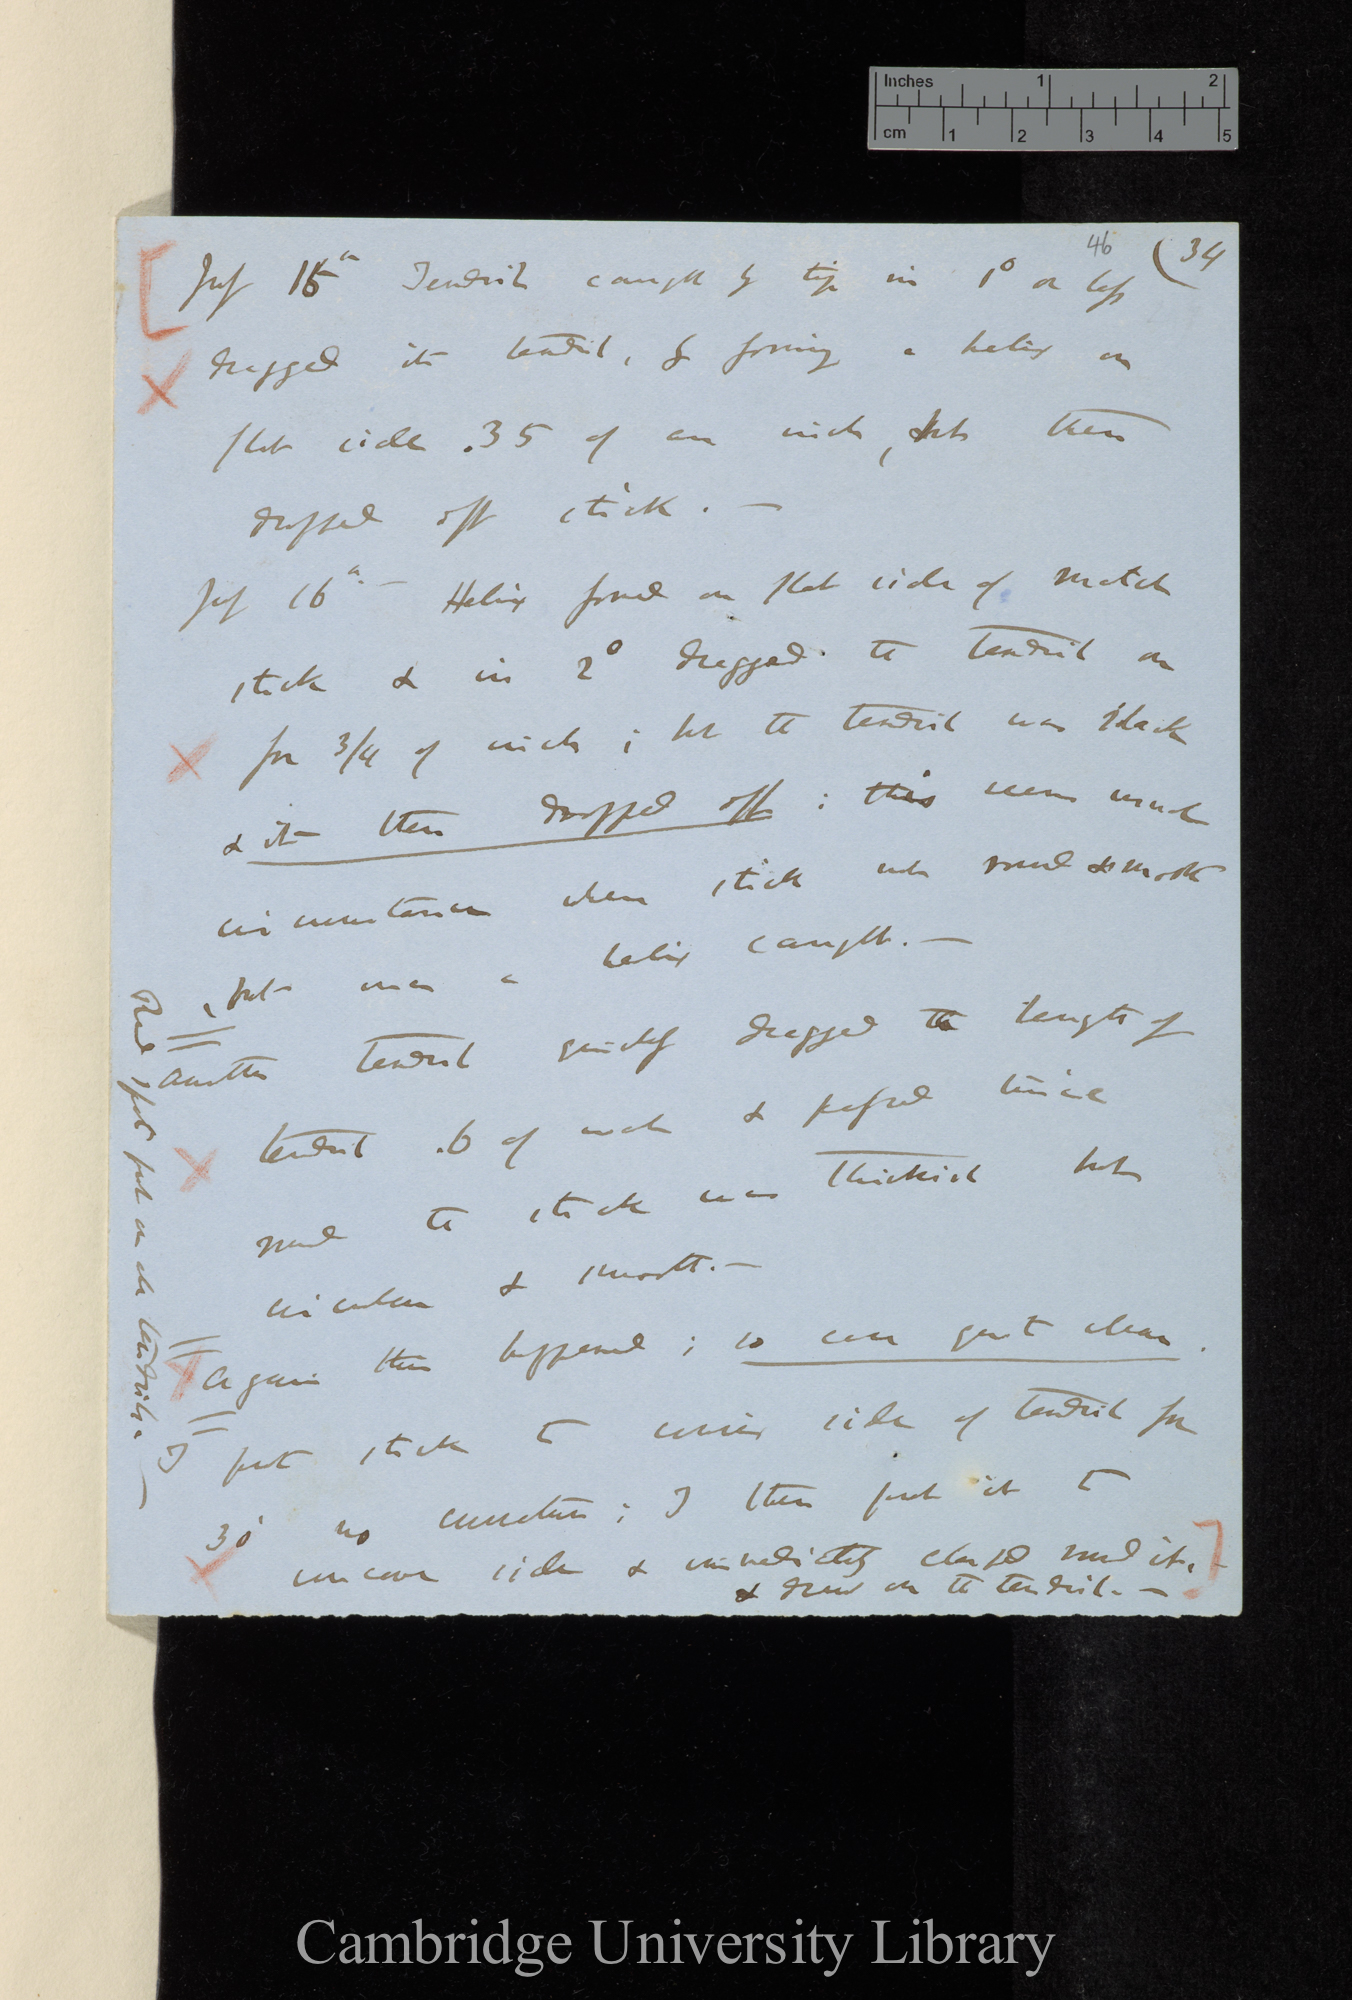 Inches 1 2
cm 1 2 3 4 5
46 (34
July 16th Tendril caught by tip in 1° or less
dragged its tendril, by forming a helix on
flat side .35 of an inch, but then
dropped off stick. —
July 16th. — Helix formed on flat side of match
stick & in 2° dragged the tendril on
for 3/4 of inch; but the tendril was slack
& it then dropped off; this seems much
circumstances when stick not round & smooth
, but once a helix caught. —
Another tendril quickly dragged the length of
tendril .6 of inch & passed twice
round the stick was thickish but
circular & smooth. —
Again this happened; so can get clean.
I put stick to convex side of tendril for
30' no curvature; I then put it to
concave side & immediately clasped round it. —
& drew on the tendril. —
Red spot put on the tendrils. —
Cambridge University Library